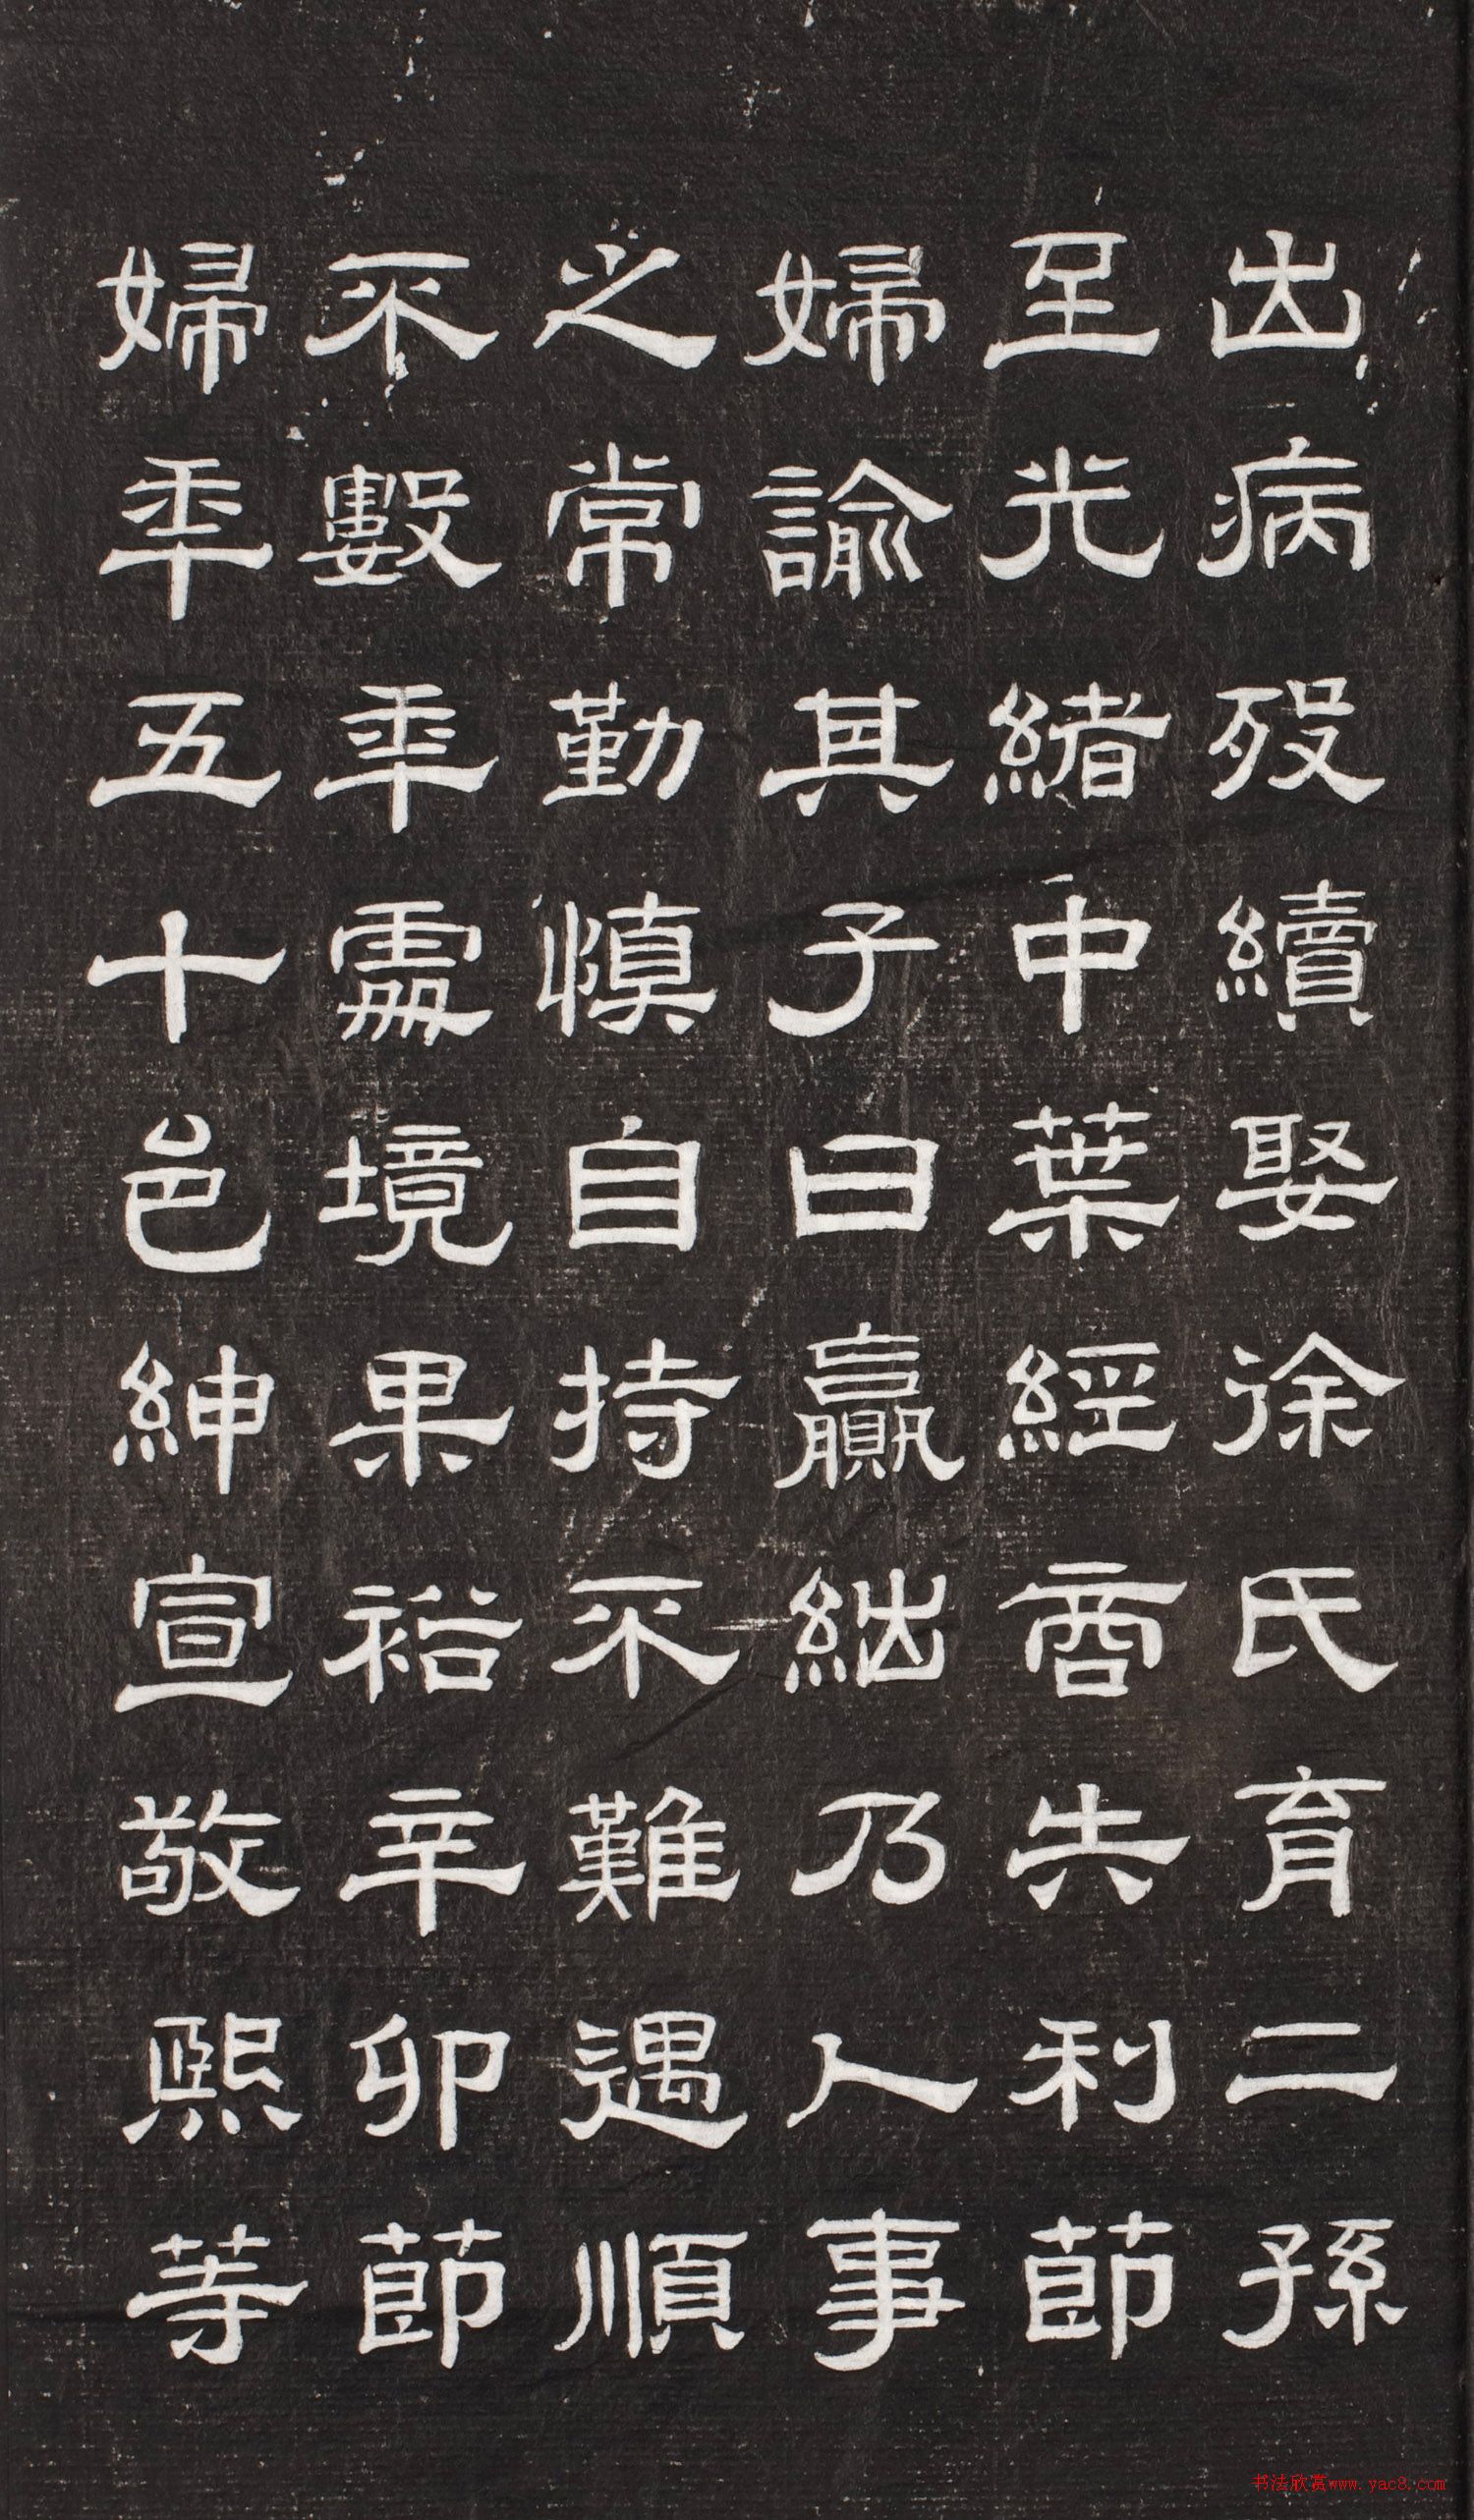 出病歿續娶徐氏育二孫
至光緒中葉經商失利節
婦諭其子曰贏絀乃人事
之常勤慎自持不難遇順
不數年處境果裕辛卯節
婦年五十邑紳宣敬熙等
书法欣赏www.yac8.com